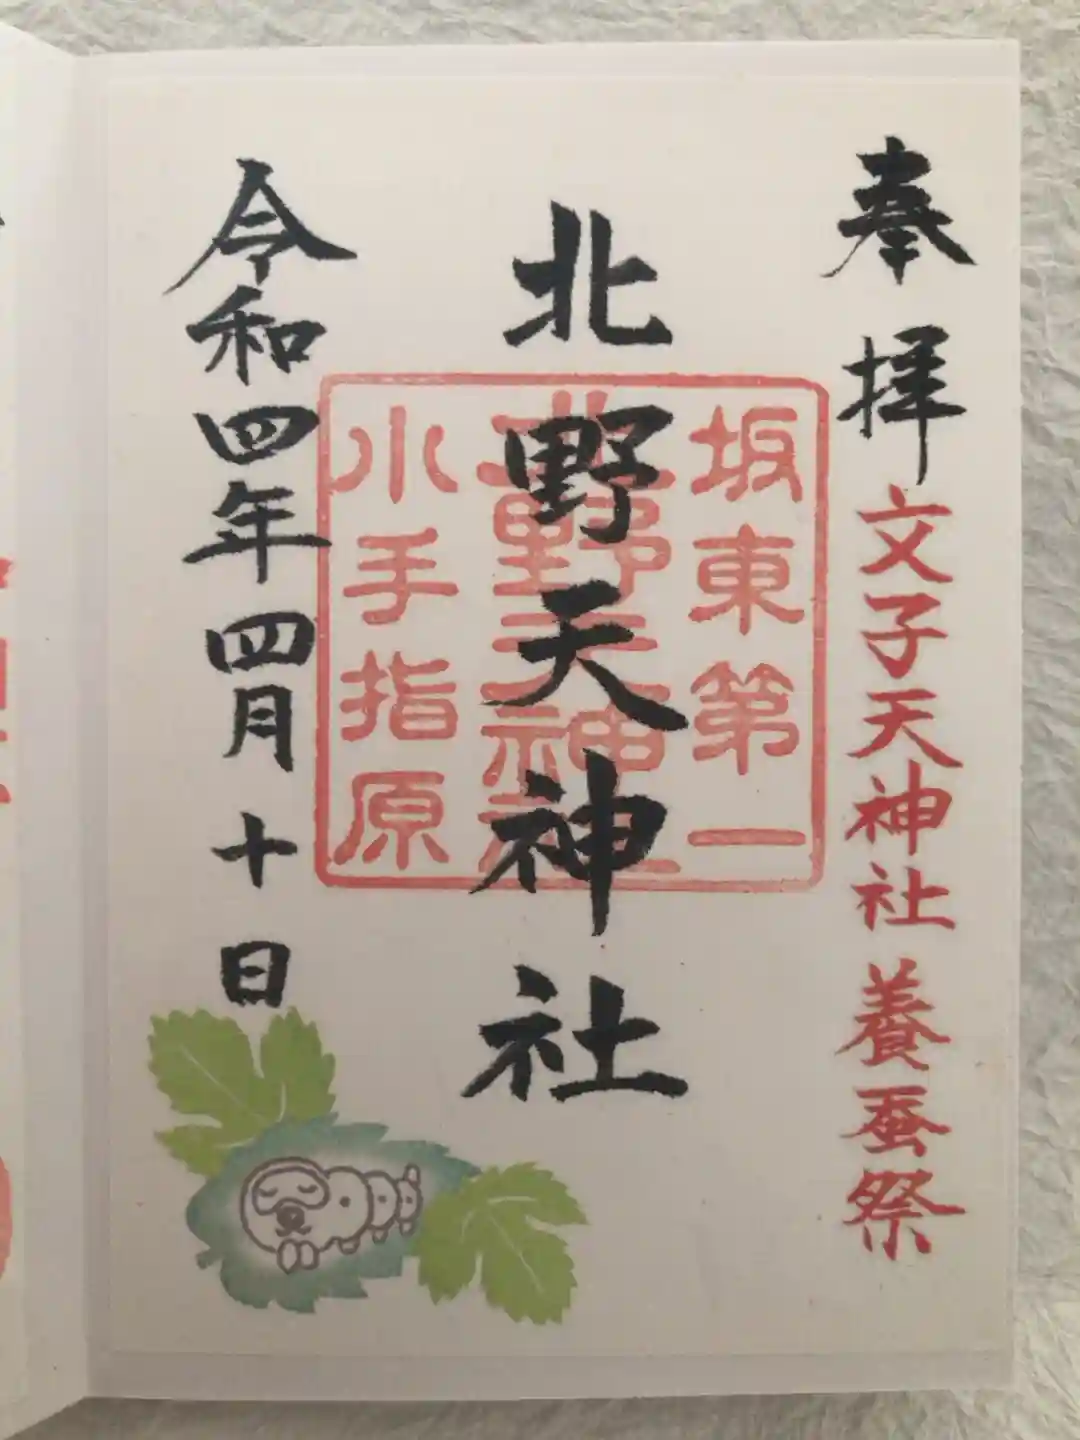 奉拝
文子天神社 養蚕祭
坂東第一
北野天神社
北野天神社
小手指原
令和四年四月十日